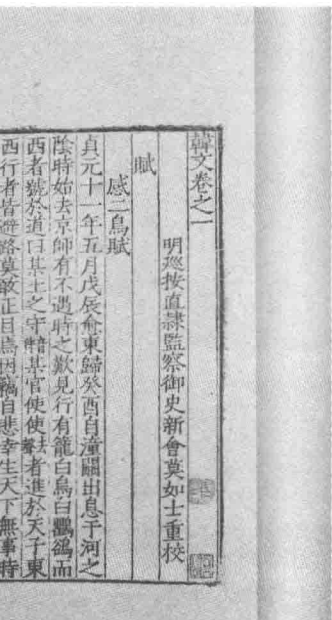 韓文卷之一
明廵按直隷監察御史新會莫如士重校
賦
感二鳥賦
貞元十一年五月戊辰愈東歸癸酉自潼關出息于河之
陰時始去京師有不遇時之歎見行有籠白烏白鸜鵒而
西者號於道曰某土之守某官使使者進於天子東
西行者皆避路莫敢正目焉因竊自悲幸生天下無事時